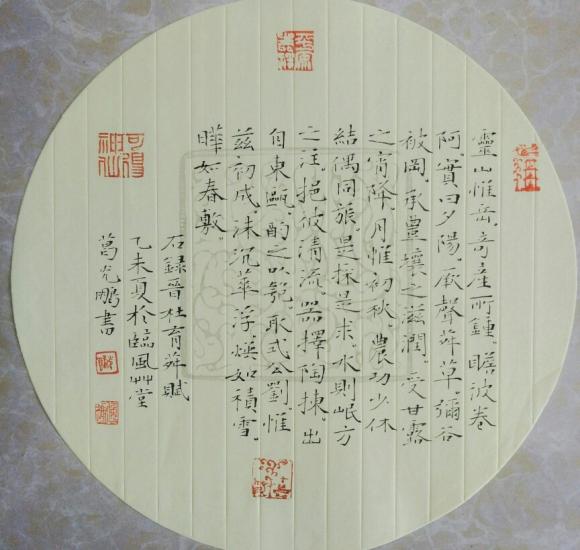 靈山惟岳。奇產所鍾。瞻彼卷
阿。實曰夕陽。厥聲荈草。彌谷
被岡。承豐壤之滋潤。受甘露
之宵降。月惟初秋。農功少休
結偶同旅。是採是求。水則岷方
之注。挹彼清流。器擇陶揀。出
自東甌。酌之以匏。取式公劉。惟
茲初成。沫沉華浮。煥如積雪。
曄如春敷。
右錄晉杜育荈賦
乙未夏於臨風艸堂
葛光鵬書
可得神仙